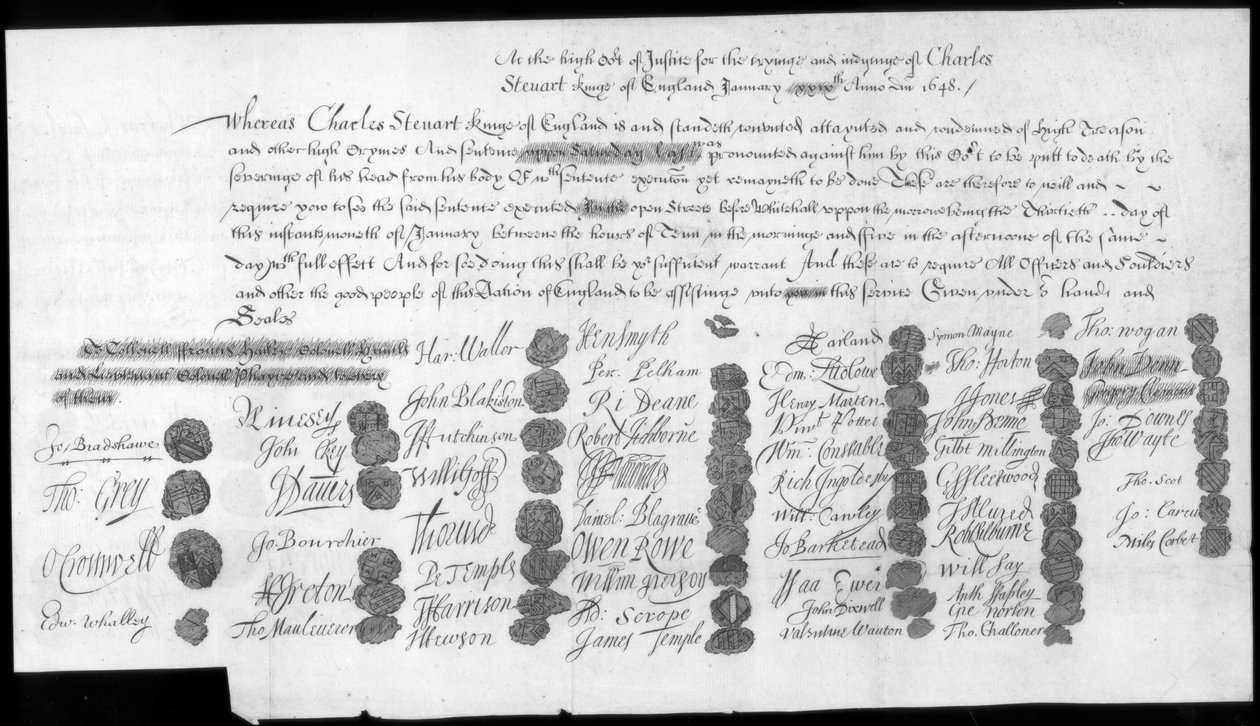 At the high Cot of Justice for the tryinge and iudginge of Charles
Steuart kinge of England January xxixth Anno Dni 1648./
Whereas Charles Steuart kinge of England is and standeth convicted attaynted and condemned of High Treason
and other high Crymes And sentence uppon Saturday last was pronounced against him by this Cot to be putt to death by the
severinge of his head from his body Of wch sentence execucon yet remayneth to be done These are therefore to will and
require you to see the said sentence executed In the open Streete before Whitehall uppon the morrowe being the Thirtieth day of
this instante moneth of January betweene the houres of Tenn in the morninge and ffive in the afternoone of the same
day wth full effect And for soe doing this shall be yor sufficient warrant And these are to require All Officers and Souldiers
and other the good people of this Nation of England to be assistinge unto you in this service Given under or hands and
Seales
To Collonell ffrancis Hacker Colonell Huncks
and Lieutenant Colonell Phayre and to every
of them
Jo: Bradshawe
Tho: Grey
O Cromwell
Edw: Whalley
M Livesey
John Okey
J Dauers
Jo: Bourchier
H Ireton
Tho Mauleuerer
Har: Waller
John Blakiston
J Hutchinson
Will Goff
Tho Pride
Pe Temple
T Harrison
J Hewson
Hen Smyth
Per: Pelham
Ri Deane
Robert Tichborne
H Edwardes
Daniel: Blagraue
Owen Rowe
William Purefoy
Ad: Scrope
James Temple
A Garland
Edm: Ludlowe
Henry Marten
Vinct Potter
Wm: Constable
Rich Ingoldesby
Will: Cawley
Jo Barkestead
Isaa Ewer
John Dixwell
Valentine Wauton
Symon Mayne
Tho: Horton
J Jones
John Penne
Gilbt Millington
G ffleetwood
J Alured
Rob Lilburne
Will Say
Anth Stapley
Gre Norton
Tho: Challoner
Tho: Wogan
John Uenn
Gregory Clement
Jo: Downes
Tho Wayte
Tho: Scot
Jo: Carew
Miles Corbet